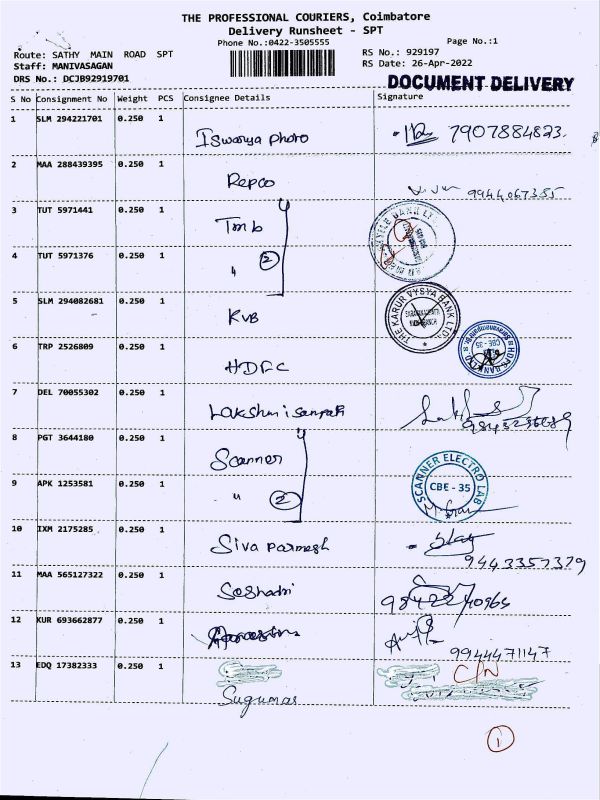 THE PROFESSIONAL COURIERS, Coimbatore
Delivery Runsheet - SPT
Phone No.:0422-3505555
Page No.:1
Route: SATHY MAIN ROAD SPT
RS No.: 929197
Staff: MANIVASAGAN
RS Date: 26-Apr-2022
DRS No.: DCJB92919701
DOCUMENT DELIVERY
S No Consignment No Weight PCS Consignee Details Signature
1 SLM 294221701 0.250 1 Iswarya photo 7907884823.
2 MAA 288439395 0.250 1 Repco 9944067355
3 TUT 5971441 0.250 1 Tmb
4 TUT 5971376 0.250 1 " 2
5 SLM 294082681 0.250 1 KVB THE KARUR VYSYA BANK LTD.
6 TRP 2526809 0.250 1 HDFC HDFC BANK LTD CBE - 35
7 DEL 70055302 0.250 1 Lakshmi
8 PGT 3644180 0.250 1 Scanner SCANNER ELECTRO LAB
9 APK 1253581 0.250 1 " 2 CBE - 35
10 IXM 2175285 0.250 1 Siva Parmesh 9443357379
11 MAA 565127322 0.250 1 Seshadri
12 KUR 693662877 0.250 1 9944471147
13 EDQ 17382333 0.250 1 Sugumar
1